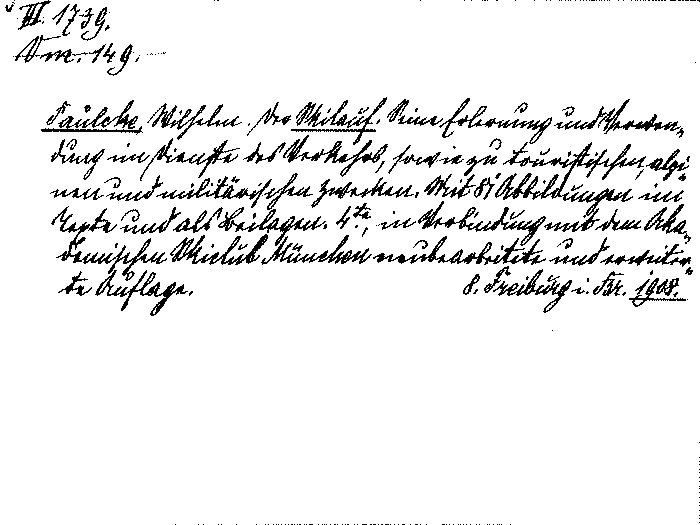 VI. 1739.
Vm. 149.
Paulcke, Wilhelm. Der Skilauf. Seine Erlernung und Verwen-
dung im Dienste des Verkehrs, sowie zu touristischen, alpi-
nen und militärischen Zwecken. Mit 81 Abbildungen im
Texte und als Beilagen. 4te, in Verbindung mit dem Aka-
demischen Skiclub München neubearbeitete und erweiter-
te Auflage. 8. Freiburg i. Br. 1908.